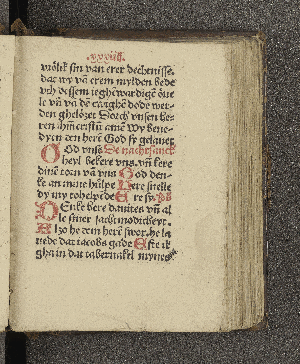 xxxviij.
vrölik sin van erer dechtenisse.
dat wy vā erem mylden bede
vth dessem ieghēwardigē öue
le vñ vā dē ewighē dode wer-
den ghelözet Dorch vnsen he-
ren ihm̄ cristū amē Wy bene-
dyen den herē God sy gelauet
God vnse De nachtsanck
heyl bekere vns. vñ kere
dinē torn vā vns God den-
ke an mine hülpe Here snelle
dy my to helpēde Ere sy. ps
DEnke here dauites vñ al
le siner sachtmodicheyt.
Alzo he dem herē swor. he la
uede dat iacobs gade Efte ik
gha in dat tabernakel mynes